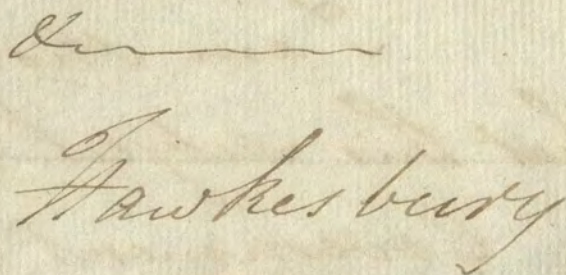 &c
Hawkesbury